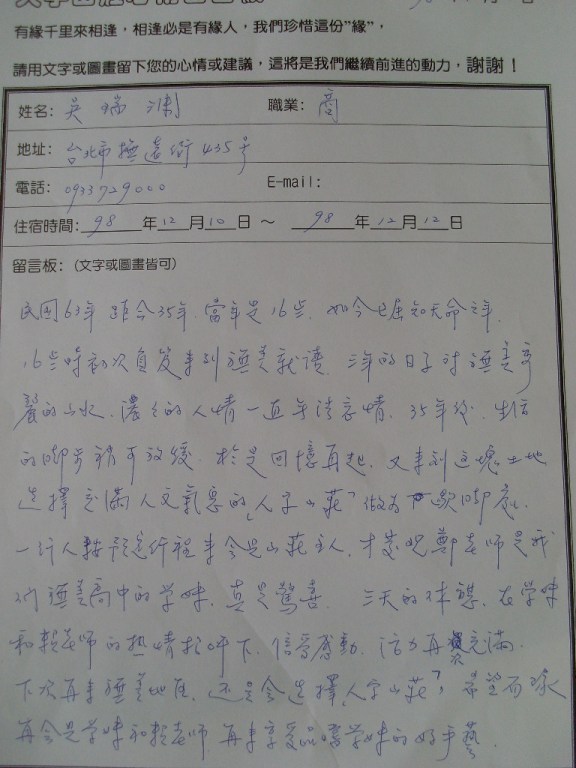 有緣千里來相逢，相逢必是有緣人，我們珍惜這份"緣"，
請用文字或圖畫留下您的心情或建議，這將是我們繼續前進的動力，謝謝！
姓名：吳瑞洌 職業：商
地址：台北市撫遠街435号
電話：0933729000 E-mail：
住宿時間：98年12月10日～98年12月12日
留言板：（文字或圖畫皆可）
民國63年距今35年，當年是16歲，如今已屆知天命之年，
16歲時初次負笈來到旗美就讀，三年的日子對旗美秀
麗的山水、濃濃的人情一直無法忘情，35年後，生活
的脚步稍可放緩，於是回憶再起，又來到這塊土地
選擇充滿人文氣息的「人字山莊」做為下歇脚處。
一行人整頓完行程來会見山莊主人，才發現鄭老師是我
们旗美高中的学妹，真是驚喜，三天的休憩，在学妹
和賴老師的热情招呼下，倍受感動，活力再充滿。
下次再來旗美地區，还是会選擇「人字山莊」，希望而後
再会見学妹和賴老師，再來享受品嚐学妹的好手藝。